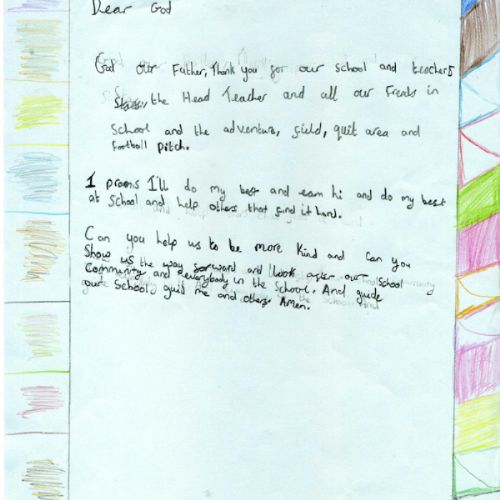 Dear God
God our Father, Thank you for our school and teachers
the Head Teacher and all our Freads in
School and the adventure, field, quit area and
Football Pitch.
I proms I'll do my best and eam hi and do my best
at School and help others that find it hard.
Can you help us to be more kind and can you
Show us the way forward and look after our School
Community and everybody in the School. And guide
our School, guid me and others. Amen.